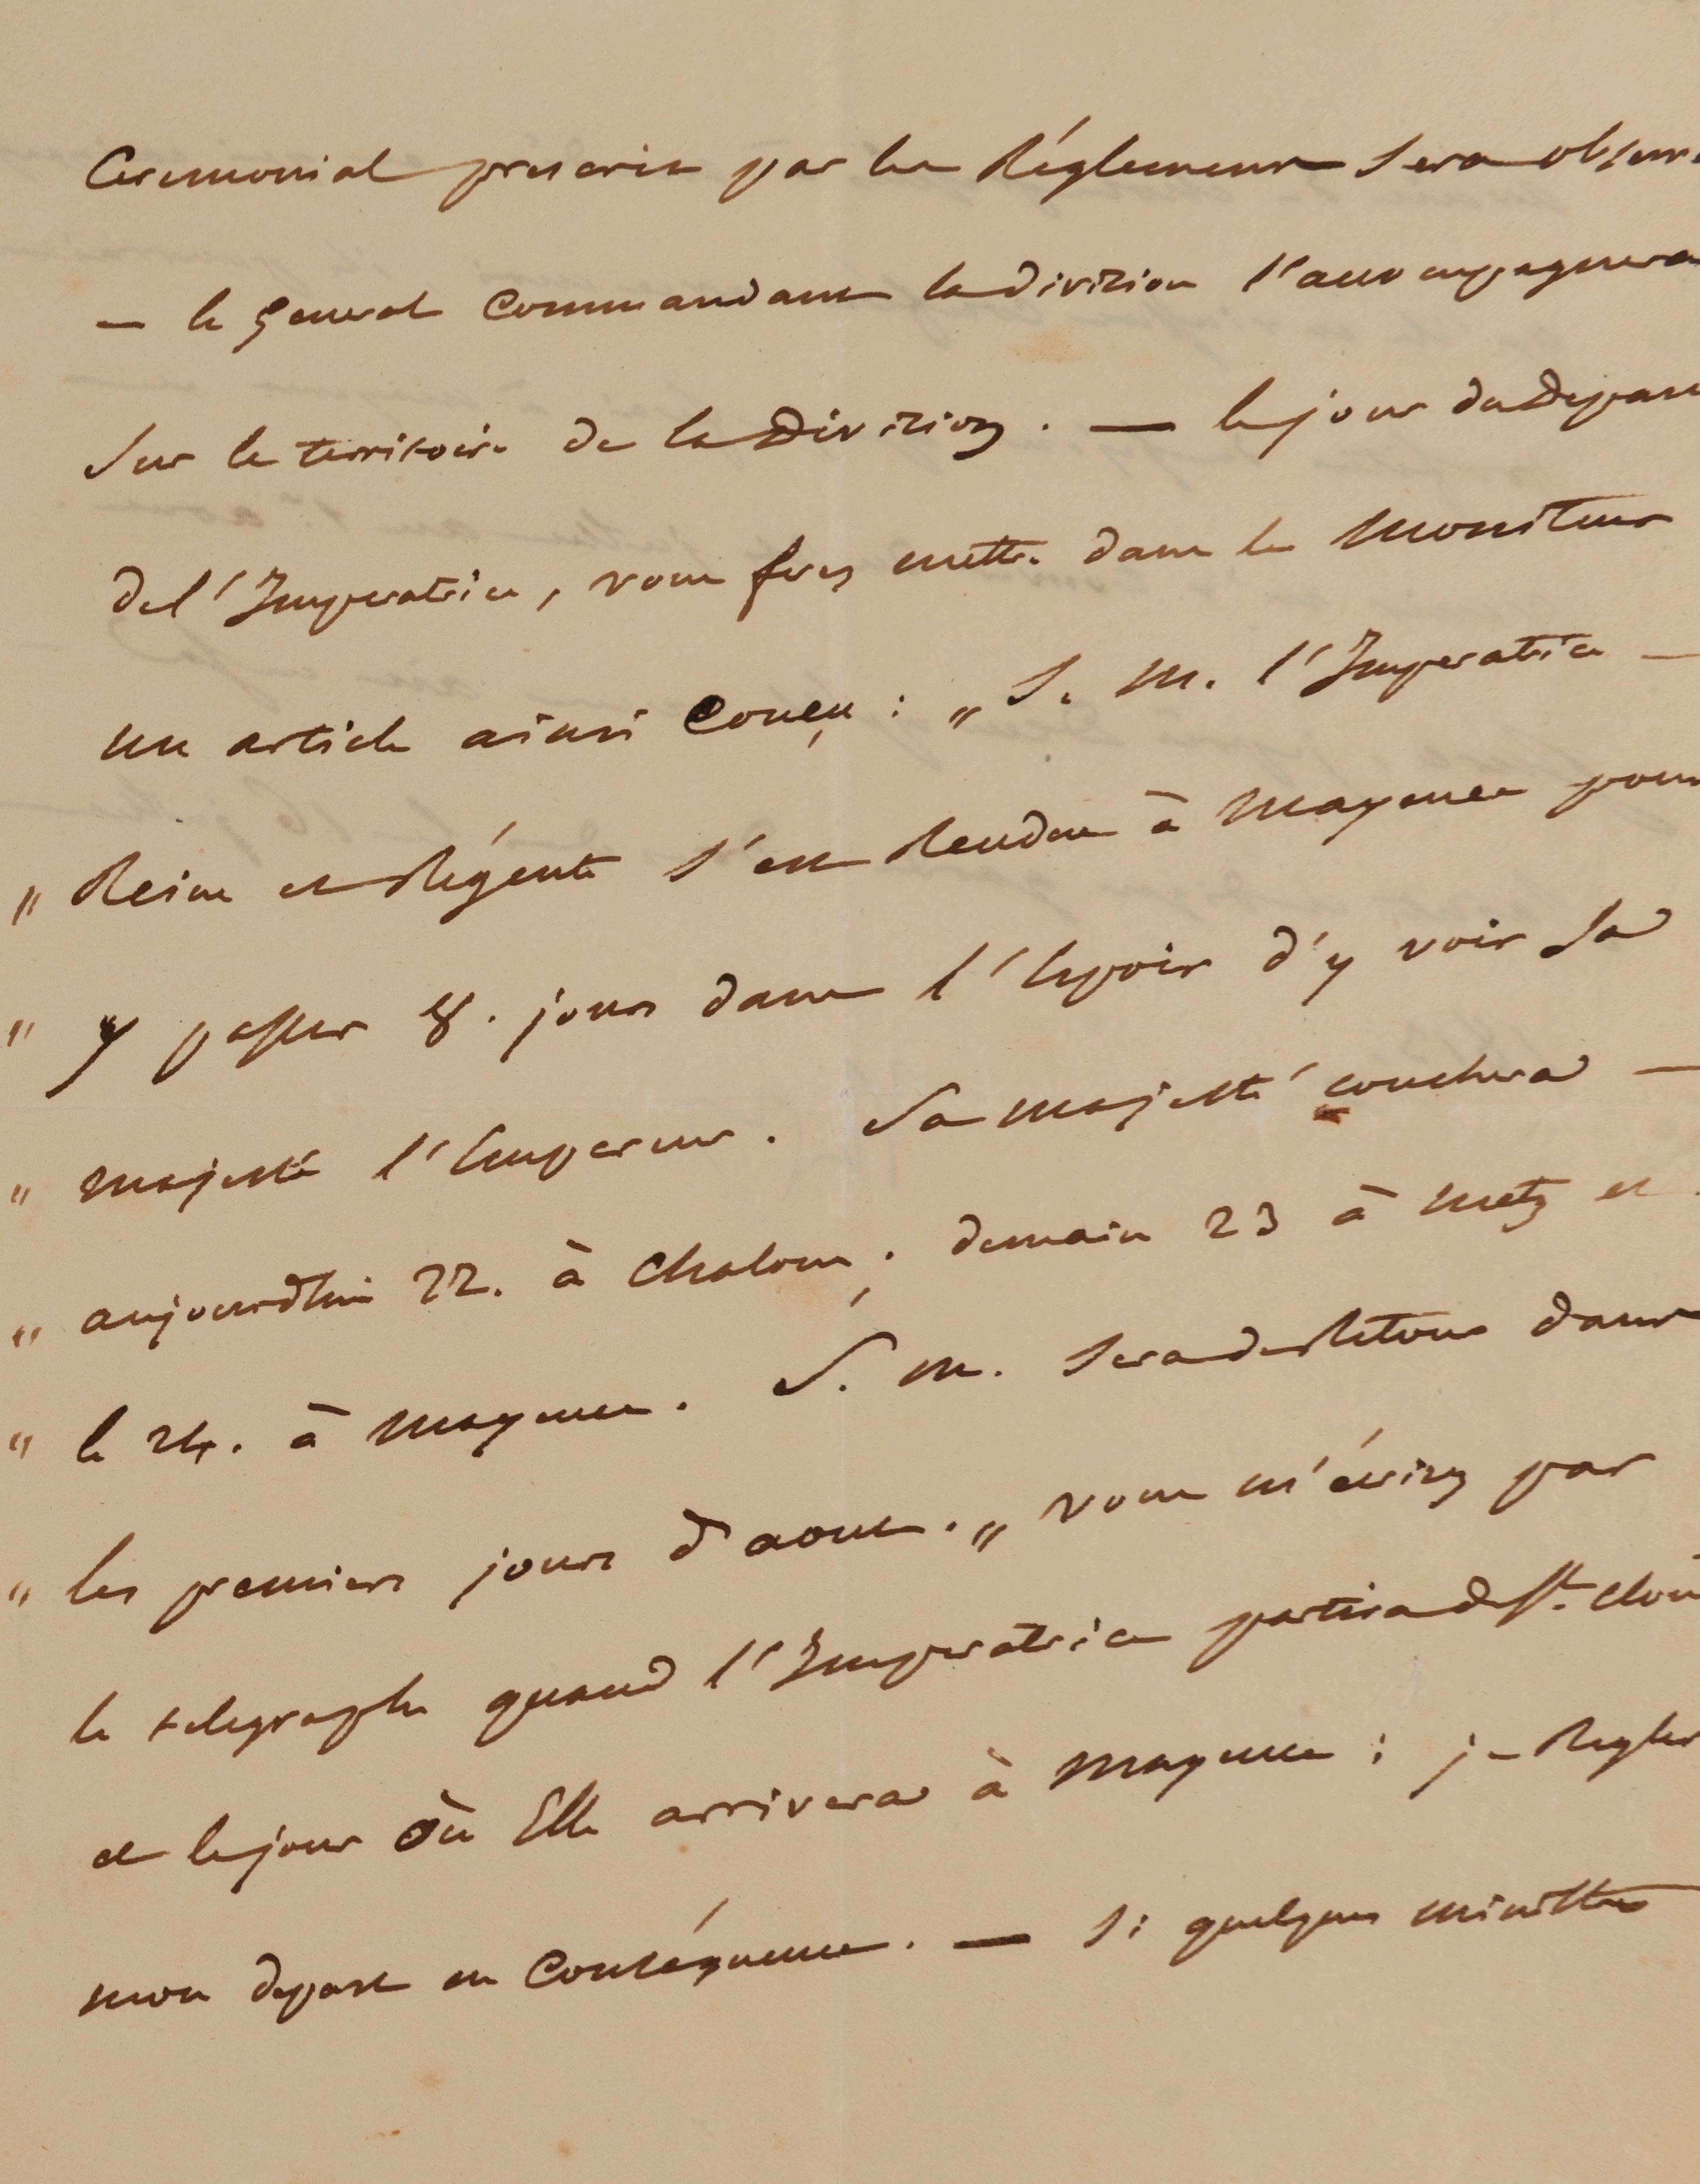 Ceremonial prescrit par les Réglemens sera observ
— le general Commandant la division l'accompagnera
sur le territoire de la Division. — le jour du Depart
de l'Imperatrice, vous ferez mettre dans le Moniteur
un article ainsi Conçu : „ S. M. l'Imperatrice —
„ Reine et Régente s'est Rendue à Mayence pour
„ y passer 8. jours dans l'Espoir d'y voir sa
„ majesté l'Empereur. Sa majesté couchera —
„ aujourdhui 22. à Chalons ; demain 23 à Metz et
„ le 24. à Mayence. S. M. sera de Retour dans
„ les premiers jours d'aout. „ vous m'écrirez par
le telegraphe quand l'Imperatrice partira de St. Clou
et le jour où Elle arrivera à Mayence : je Regler
mon depart en Conséquence. — si quelques ministres